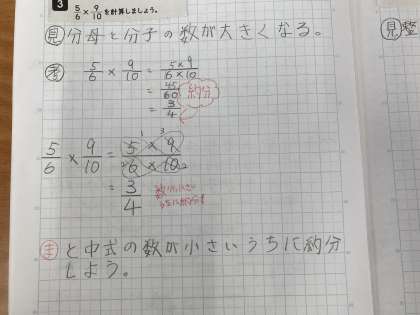 3 5/6 × 9/10 を計算しましょう。
見 分母と分子の数が大きくなる。
考 5/6 × 9/10 = 5×9/6×10
= 45/60 約分
= 3/4
5/6 × 9/10 = 5×9/6×10
= 3/4 数が小さい
ま と中式の数が小さいうちに約分
しよう。
見 整